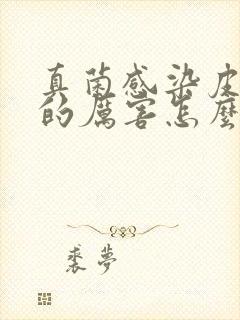 真菌感染皮
的厲害怎麼
裘夢